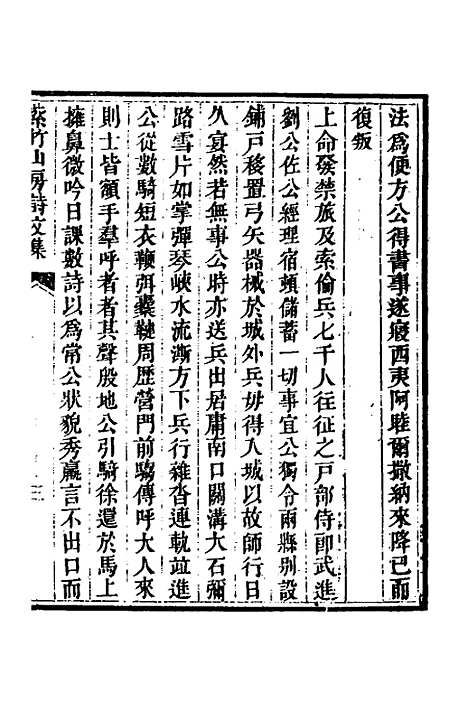 法爲便方公得書事遂寢西夷阿睦爾撒納來降已而
復叛
上命發禁旅及索倫兵七千人往征之戸部侍郎武進
劉公佐公經理宿頓儲蓄一切事宜公獨令兩縣別設
鋪戸移置弓矢器械於城外兵毋得入城以故師行日
久宴然若無事公時亦送兵出居庸南口關溝大石彌
路雪片如掌彈琴峽水流澌方下兵行雜沓連軌竝進
公從數騎短衣鞭弭櫜鞬周歷營門前騶傳呼大人來
則士皆額手羣呼者者其聲殷地公引騎徐還於馬上
擁鼻微吟日課數詩以爲常公狀貌秀羸言不出口而
紫竹山房詩文集
三